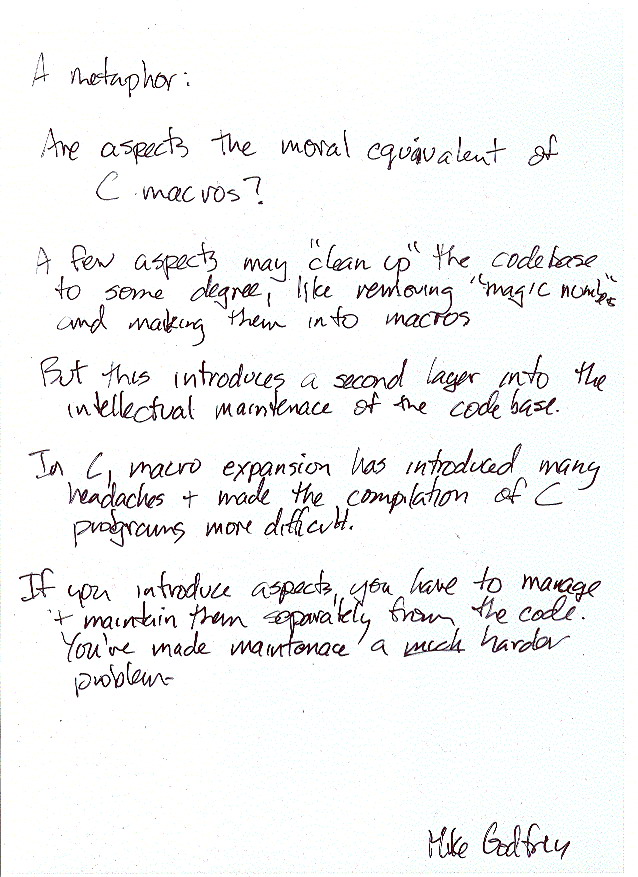 A metaphor:
Are aspects the moral equivalent of
C macros?
A few aspects may "clean up" the codebase
to some degree, like removing "magic numbers"
and making them into macros
But this introduces a second layer into the
intellectual maintenace of the codebase.
In C, macro expansion has introduced many
headaches + made the compilation of C
programs more difficult.
If you introduce aspects, you have to manage
+ maintain them separately from the code.
You've made maintenace a much harder
problem
Mike Godfrey